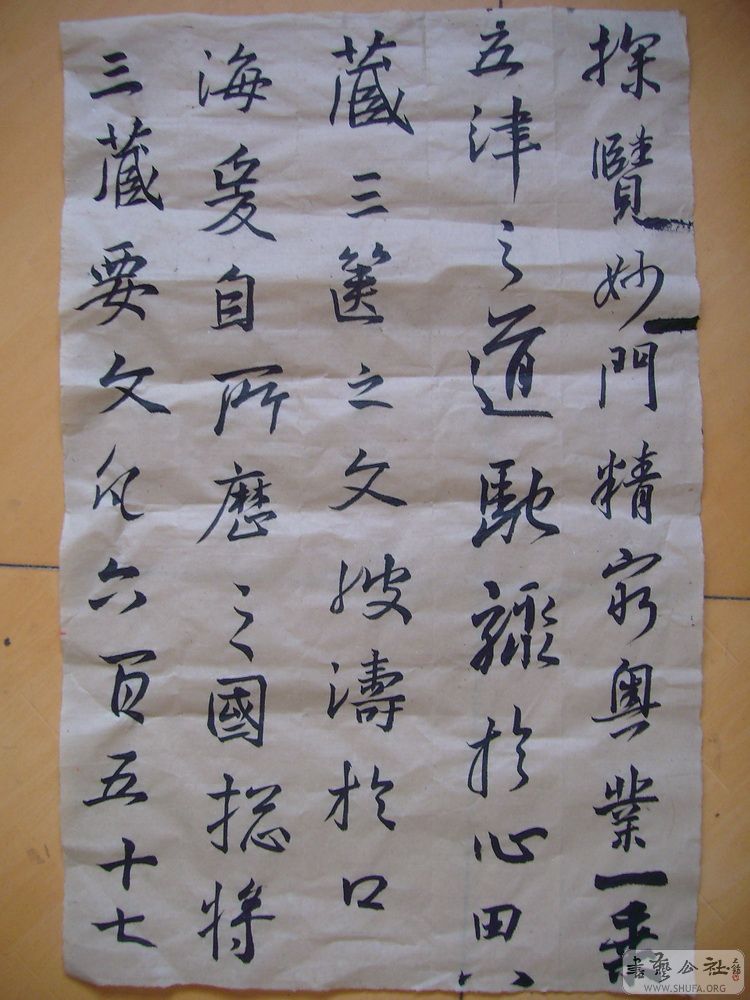 探賾妙門精窮奧業一乘
五律之道馳驟於心田八
藏三篋之文波濤於口
海爰自所歷之國揔將
三藏要文凡六百五十七
書藝公社
WWW.SHUFA.ORG